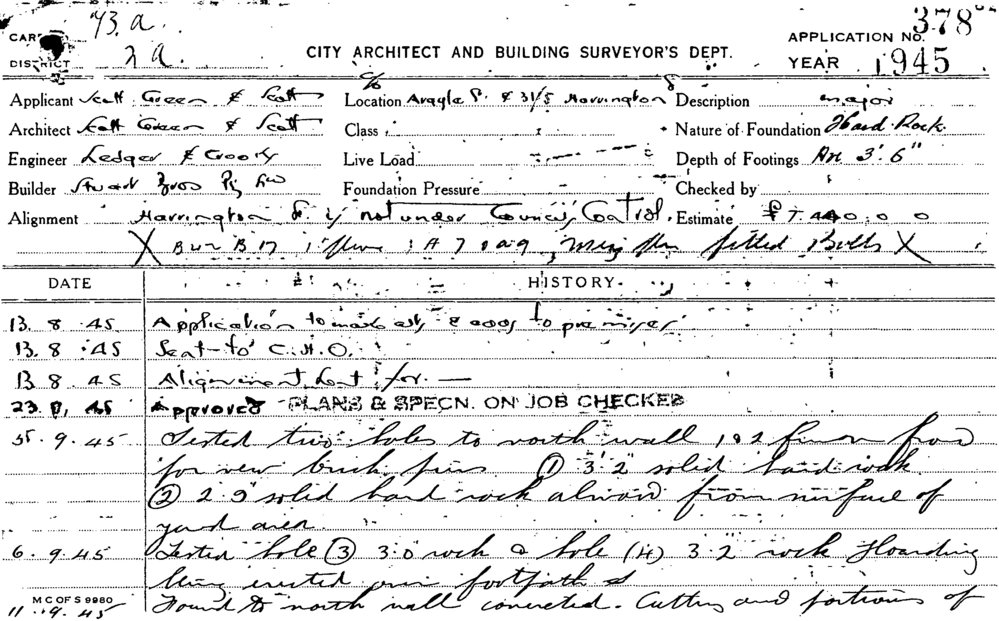 73.a.
CARD
DISTRICT 2a.
CITY ARCHITECT AND BUILDING SURVEYOR'S DEPT.
APPLICATION NO. 378
YEAR 1945
Applicant Scott Green & Scott
Location Argyle St. & 31/5 Harrington St
Description major
Architect Scott Green & Scott
Class
Nature of Foundation Hard Rock.
Engineer Ledger &
Live Load
Depth of Footings Av 3' 6"
Builder Stuart Bros Pty Ltd
Foundation Pressure
Checked by
Alignment Harrington St is not under Council's Control.
Estimate £
X fitted Bolts X
DATE HISTORY
13. 8 .45 Application to make alts & adds to premises
13. 8 .45 Sent to C.H.O.
13 8 .45 Alignment sent for.
23. 8. 45 Approved PLANS & SPECN. ON JOB CHECKED
5. 9. 45 Tested two holes to north wall 1 & 2 from
for new brick piers ① 3' 2" solid hard rock
② 2 9" solid hard rock almost from surface of
yard area.
6. 9. 45 Tested hole ③ 3.0 rock & hole (4) 3.2 rock Hoarding
being erected over footpath
M C OF S 9980
11. 9. 45 Found to north wall concreted. Cutting and portions of